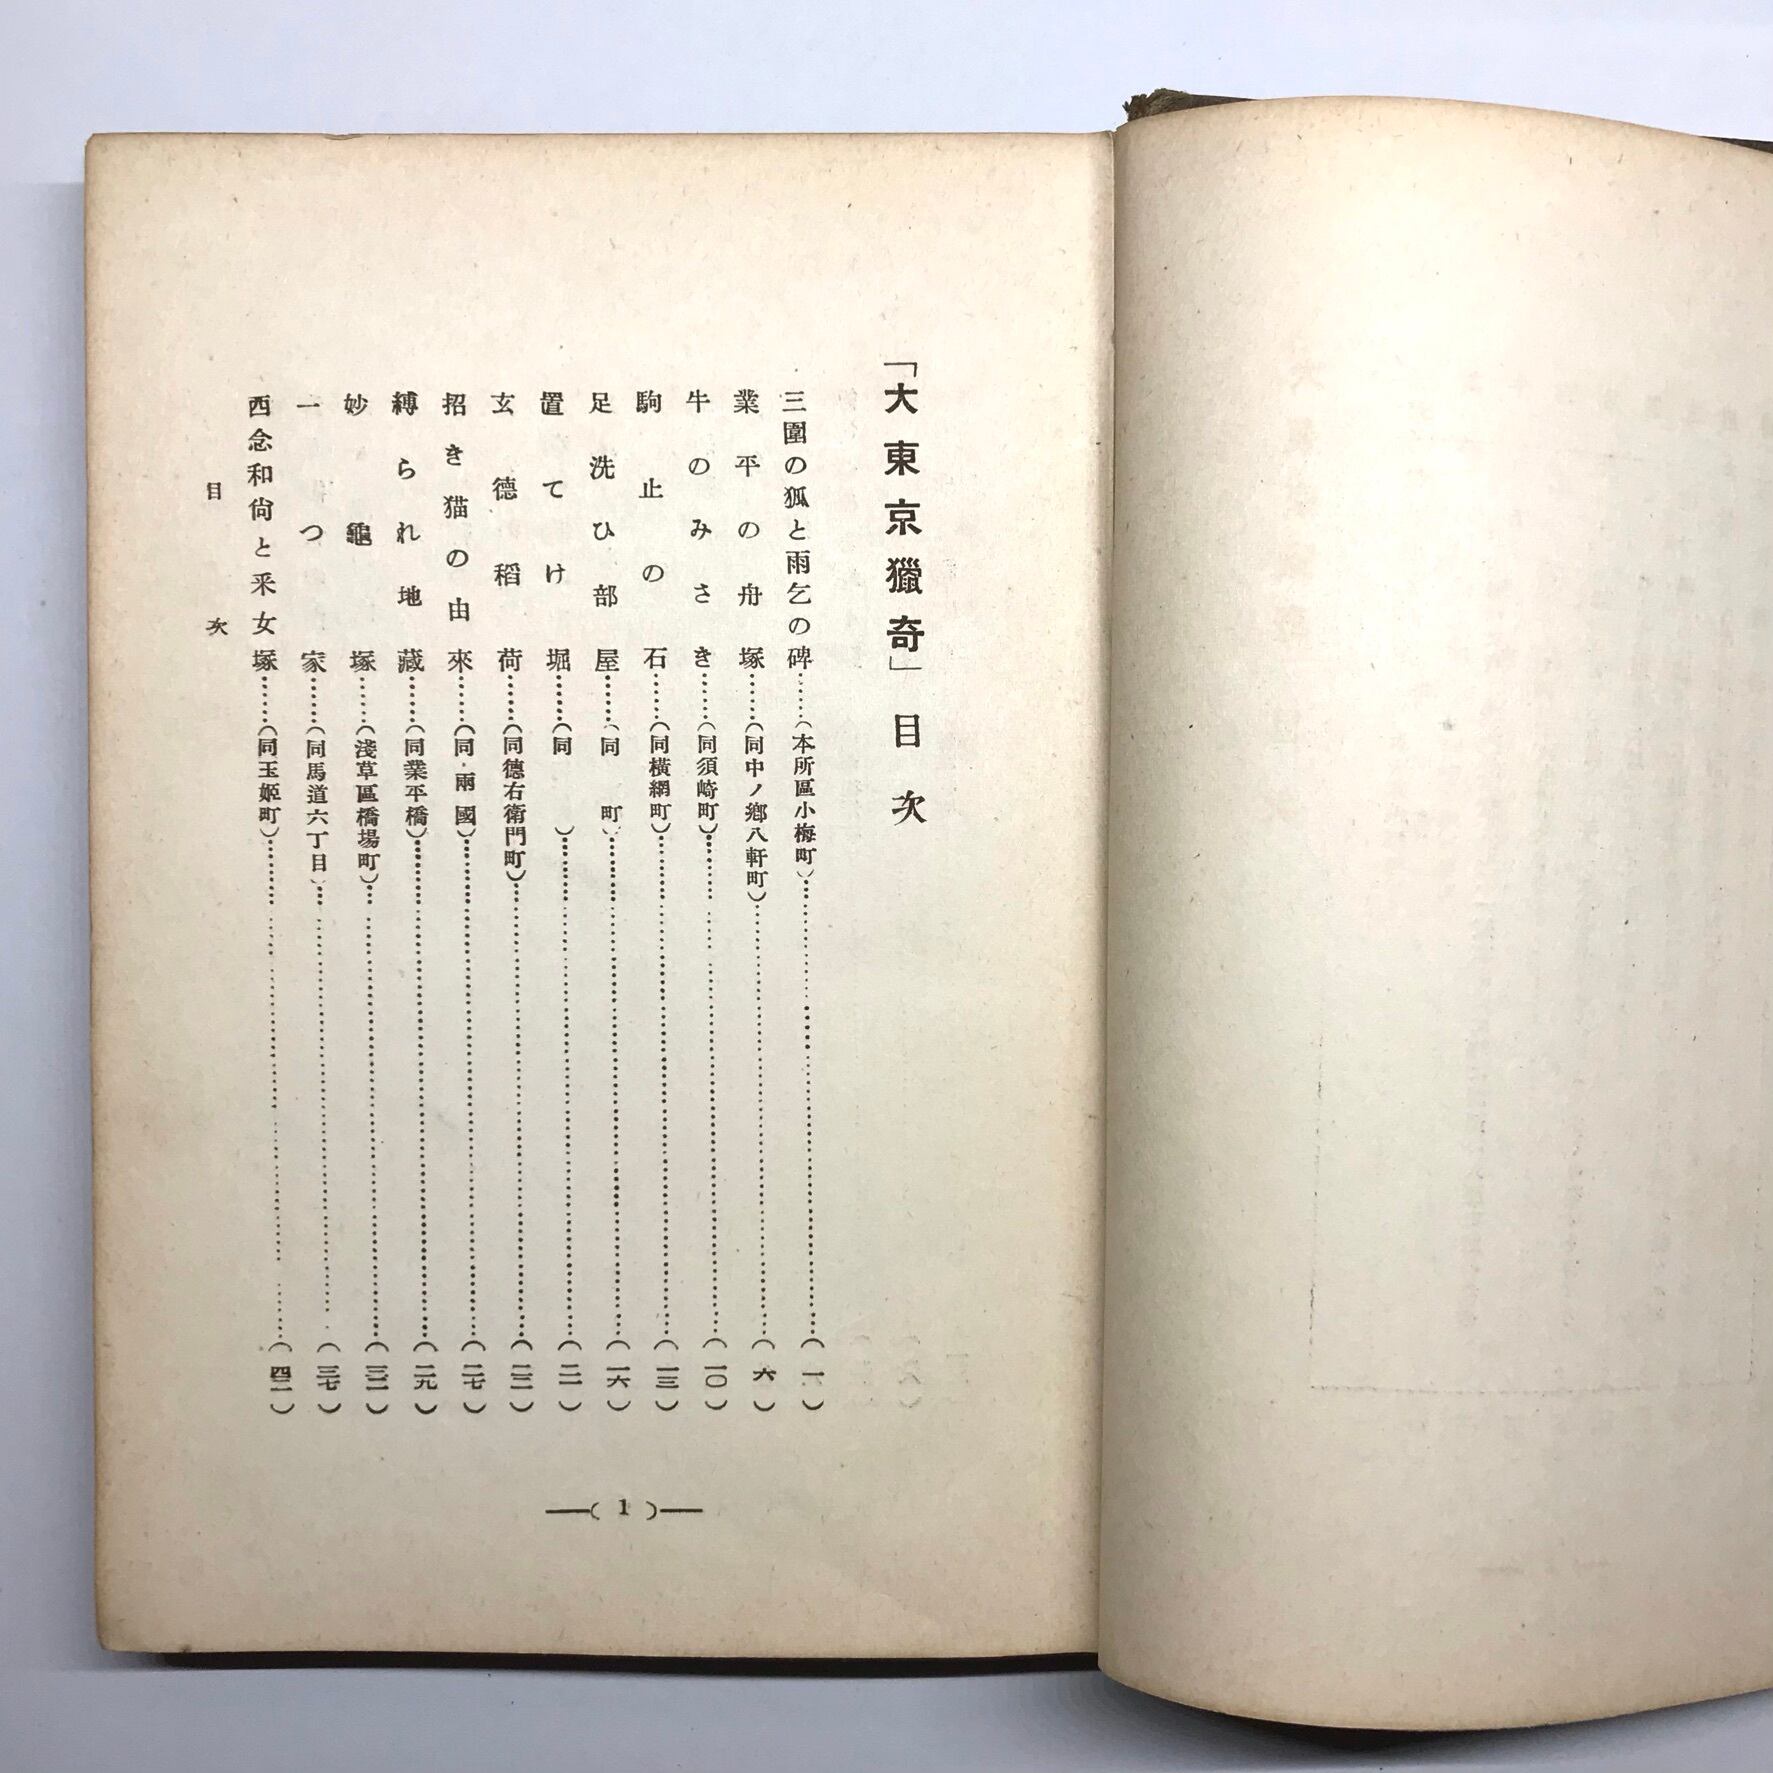 「大東京獵奇」目次
三圍の狐と雨乞の碑……(本所區小梅町)……(一)
業平の舟塚……(同中ノ鄕八軒町)……(六)
牛のみさき……(同須崎町)……(一〇)
駒止の石……(同橫網町)……(一三)
足洗ひ部屋……(同 町)……(一六)
置てけ堀……(同 )……(二一)
玄德稻荷……(同德右衛門町)……(二三)
招き猫の由來……(同・兩國)……(二七)
縛られ地藏……(同業平橋)……(二九)
妙龜塚……(淺草區橋場町)……(三二)
一つ家……(同馬道六丁目)……(三七)
西念和尙と釆女塚……(同玉姬町)……(四二)
目次
—( 1 )—